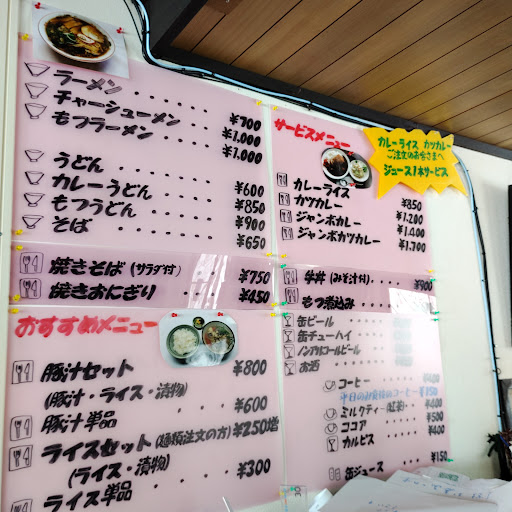 ラーメン ‥‥‥ ¥700
チャーシューメン ‥ ¥1,000
もつラーメン ‥‥‥ ¥1,000
うどん ‥‥‥ ¥600
カレーうどん ‥‥ ¥850
もつうどん ‥‥‥ ¥900
そば ‥‥‥ ¥650
焼きそば（サラダ付）‥‥ ¥750
焼きおにぎり ‥‥‥ ¥450
おすすめメニュー
豚汁セット ‥‥‥ ¥800
（豚汁・ライス・漬物）
豚汁単品 ‥‥‥ ¥600
ライスセット（麺類注文の方）¥250増
（ライス・漬物）
ライス単品 ‥‥‥ ¥300
サービスメニュー
カレーライス ‥‥ ¥850
カツカレー ‥‥ ¥1,200
ジャンボカレー ‥‥ ¥1,400
ジャンボカツカレー ‥ ¥1,700
カレーライス カツカレー
ご注文のお客さまへ
ジュース1本サービス
牛丼（みそ汁付）‥‥ ¥900
もつ煮込み ‥‥‥
缶ビール ‥‥‥
缶チューハイ ‥‥‥
ノンアルコールビール ‥‥
お酒 ‥‥‥
コーヒー ‥‥‥ ¥400
平日のお食事後のコーヒー ¥150
ミルクティ（紅茶）‥‥ ¥400
ココア ‥‥‥ ¥500
カルピス ‥‥‥ ¥400
缶ジュース ‥‥‥ ¥150